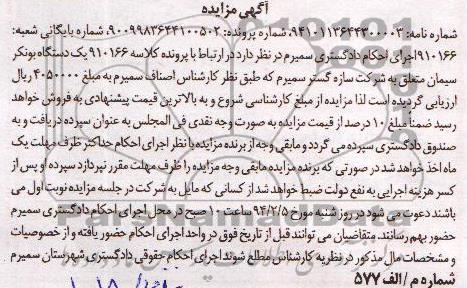 آگهی مزایده
شماره نامه: ۹۴۱۰۱۱۳۶۴۴۳۰۰۰۰۳، شماره پرونده: ۹۰۰۹۹۸۳۶۴۴۱۰۰۵۰۲، شماره بایگانی شعبه:
۹۱۰۱۶۶اجرای احکام دادگستری سمیرم در نظر دارد در ارتباط با پرونده کلاسه ۹۱۰۱۶۶ یک دستگاه بونکر
سیمان متعلق به شرکت سازه گستر سمیرم که طبق نظر کارشناس اصناف سمیرم به مبلغ ۴۰۵۰۰۰۰ ریال
ارزیابی گردیده است لذا مزایده از مبلغ کارشناسی شروع و به بالاترین قیمت پیشنهادی به فروش خواهد
رسید ضمناً مبلغ ۱۰ درصد از قیمت مزایده به صورت وجه نقدی فی المجلس به عنوان سپرده دریافت و به
صندوق دادگستری سپرده می گردد و مابقی وجه از برنده مزایده با نظر اجرای احکام حداکثر ظرف مهلت یک
ماه اخذ خواهد شد در صورتی که برنده مزایده مابقی وجه مزایده را ظرف مهلت مقرر نپردازد سپرده او پس از
کسر هزینه اجرایی به نفع دولت ضبط خواهد شد از کسانی که مایل به شرکت در جلسه مزایده نوبت اول می
باشند دعوت می شود در روز شنبه مورخ ۹۴/۲/۵ ساعت ۱۰ صبح در محل اجرای احکام دادگستری سمیرم
حضور بهم رسانند. متقاضیان می توانند قبل از تاریخ فوق در واحد اجرای احکام حضور یافته و از خصوصیات
و مشخصات مال مذکور در نظریه کارشناس مطلع شوند اجرای احکام حقوقی دادگستری شهرستان سمیرم
شماره م/الف ۵۷۷